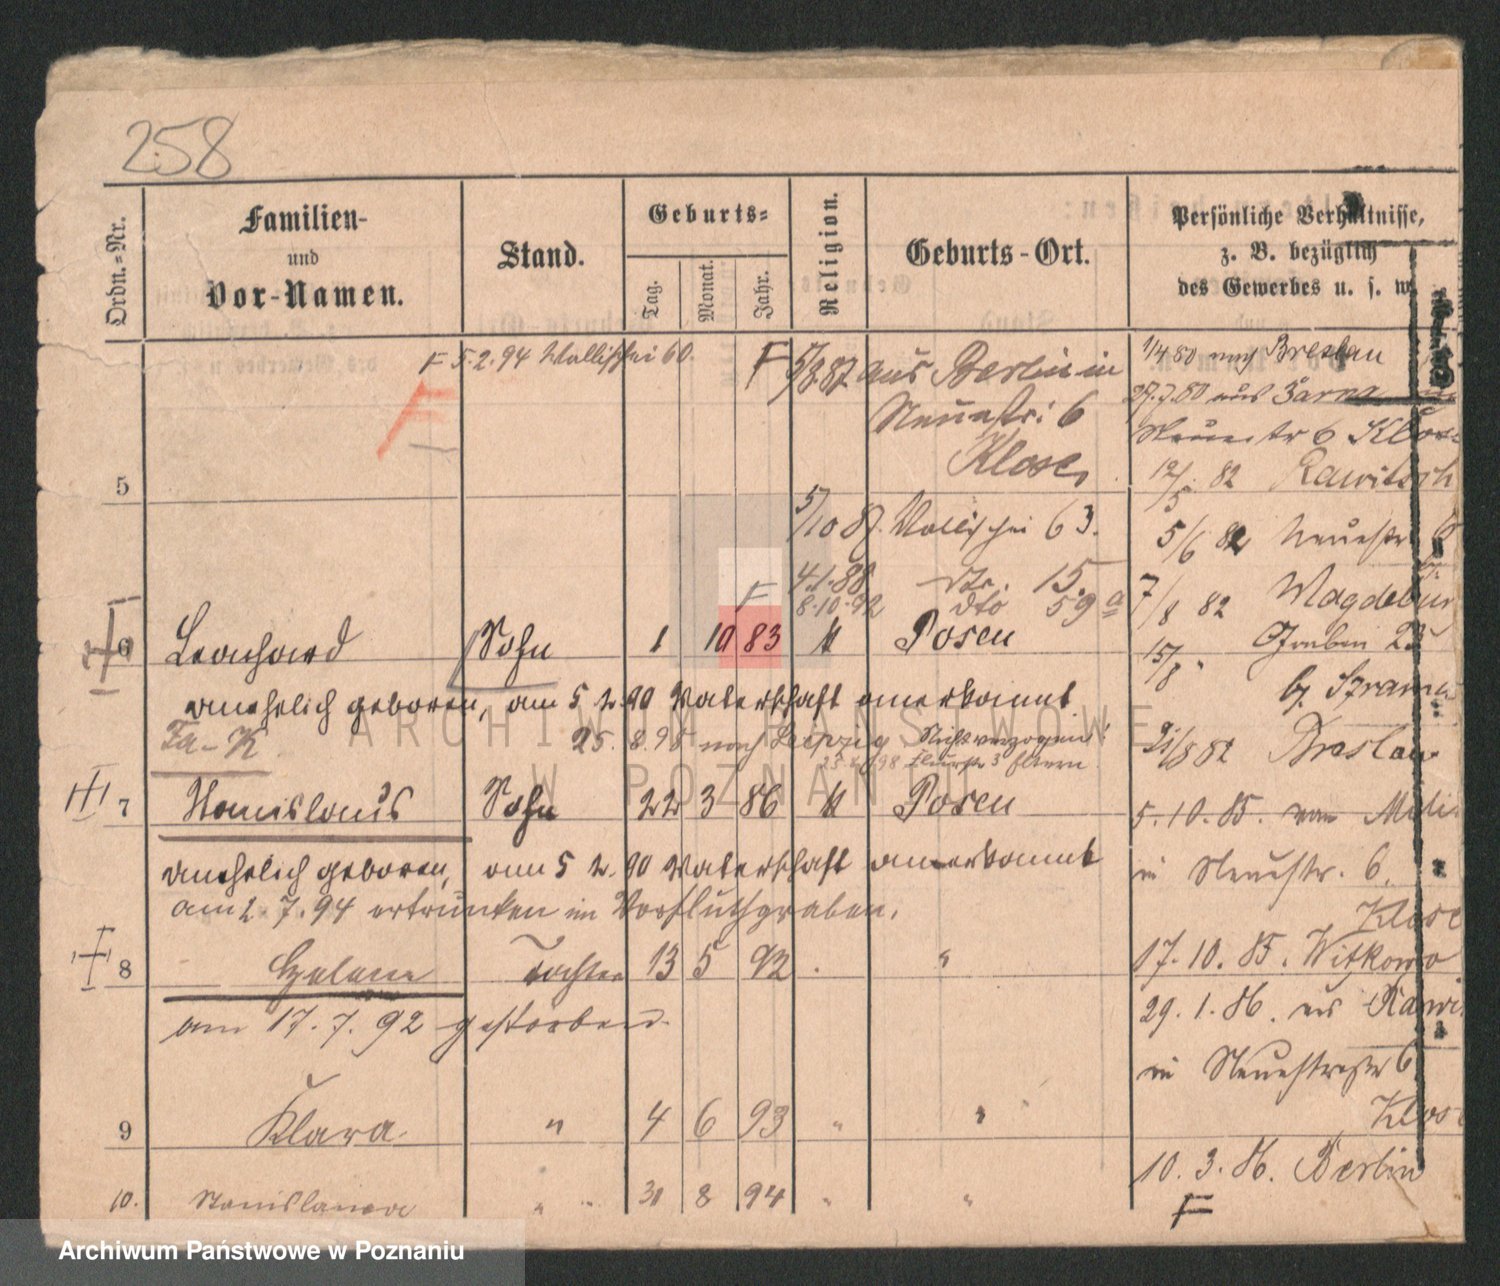 258
Ordn.-Nr.
Familien-
und
Vor-Namen.
Stand.
Geburts-
Tag.
Monat.
Jahr.
Religion.
Geburts-Ort.
Persönliche Verhältnisse,
z. B. bezüglich
des Gewerbes u. s. w.
F 5.2.94 Wallischei 60.
F
5/3 87 aus Berlin in
Neuestr. 6
Klose
F
5
5/10 87. Wallischei 63.
4.1.88 dto. 15.
F 8.10.92 dto 59 a
6 Leonhard Sohn 1 10 83 k Posen
unehelich geboren, am 5 2. 90 Vaterschaft anerkannt
25. 8.98 nach Leipzig Nicht verzogen!
7 Stanislaus Sohn 22 3 86 k Posen
unehelich geboren, am 5 2. 90 Vaterschaft anerkannt
am 2. 7. 94 ertrunken im Vorfluthgraben.
8 Helene Tochter 13 5 92 . "
am 17. 7. 92 gestorben.
9 Klara. " 4 6 93 " "
10. Stanislawa " " 31 8 94 " "
1/4 80 nach Breslau
27.7.80 aus
Neuestr 6 Klose
12/5 82 Rawitsch
5/6 82 Neuestr 6
7/8 82 Magdebur
15/8 " Graben 25
b. Szrama
21/8 82 Breslau
5. 10. 85. von
in Neuestr. 6.
Klose
17. 10. 85. Witkowo
29. 1. 86. aus Rawi
in Neuestrasse 6
Klose
10. 3. 86. Berlin
F
ARCHIWUM PAŃSTWOWE
W POZNANIU
Archiwum Państwowe w Poznaniu